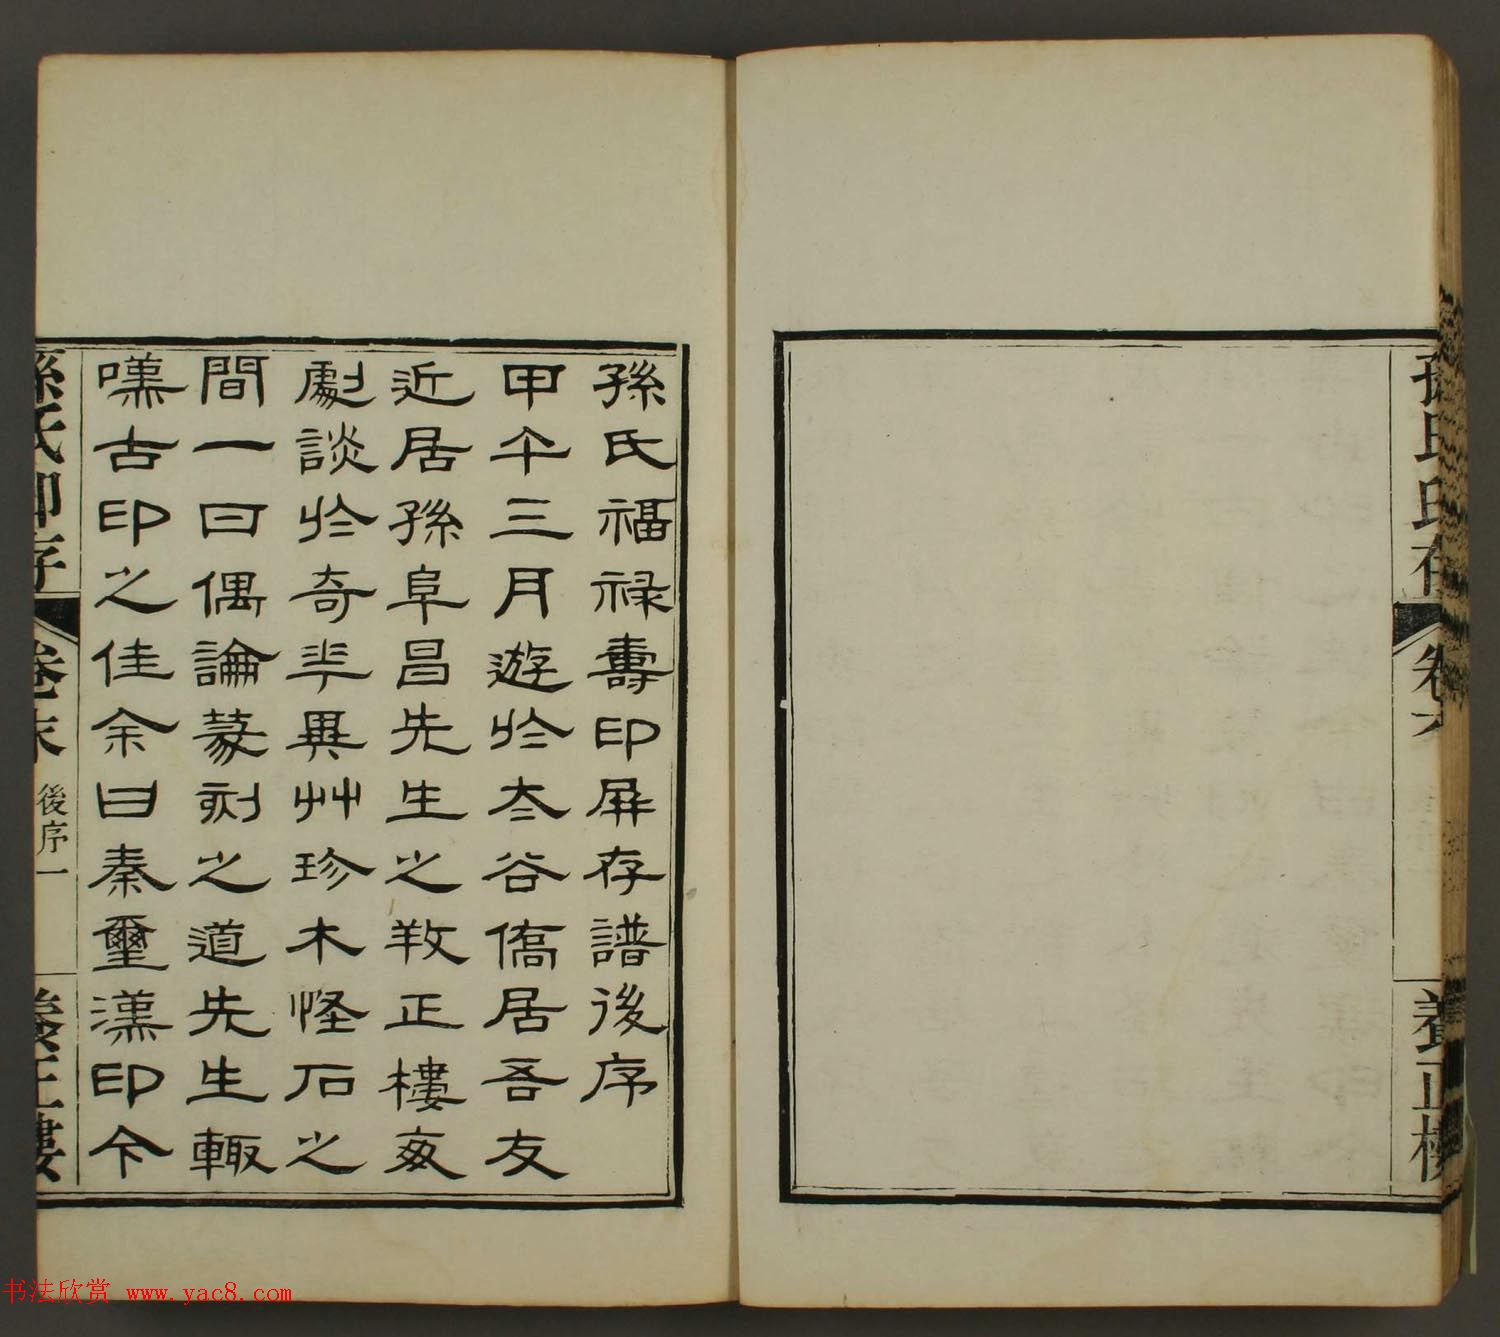 孫氏印存 卷六 養正樓
孫氏福祿壽印屏存譜後序
甲午三月遊於太谷僑居吾友
近居孫阜昌先生之養正樓每
劇談於奇華異艸珍木怪石之
間一日偶論篆刻之道先生輙
嘆古印之佳余曰秦璽漢印今
孫氏印存 卷末 後序一 養正樓
书法欣赏 www.yac8.com